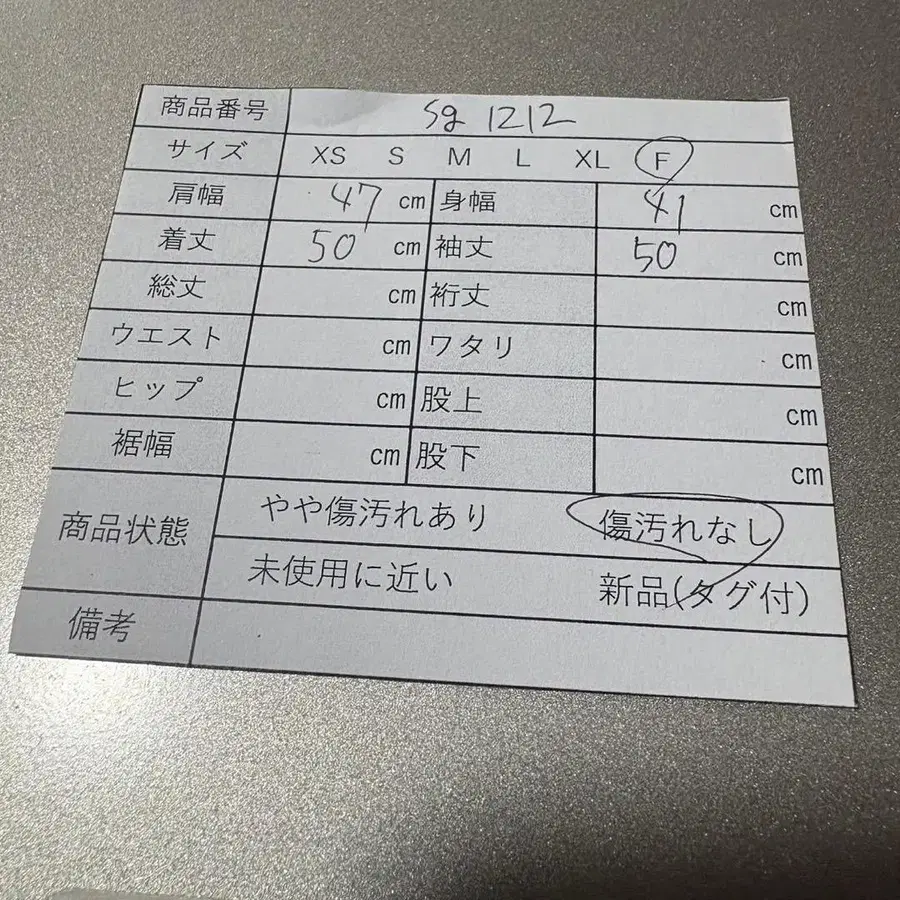 商品番号 Sg 1212
サイズ XS S M L XL F
肩幅 47 cm 身幅 41 cm
着丈 50 cm 袖丈 50 cm
総丈 cm 裄丈 cm
ウエスト cm ワタリ cm
ヒップ cm 股上 cm
裾幅 cm 股下 cm
商品状態 やや傷汚れあり 傷汚れなし
未使用に近い 新品(タグ付)
備考